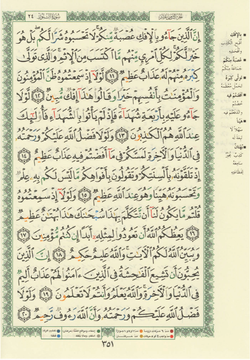 إِنَّ ٱلَّذِينَ جَآءُو بِٱلْإِفْكِ عُصْبَةٌ مِّنكُمْ لَا تَحْسَبُوهُ شَرًّا لَّكُم بَلْ هُوَ
خَيْرٌ لَّكُمْ لِكُلِّ ٱمْرِئٍ مِّنْهُم مَّا ٱكْتَسَبَ مِنَ ٱلْإِثْمِ وَٱلَّذِى تَوَلَّىٰ
كِبْرَهُۥ مِنْهُمْ لَهُۥ عَذَابٌ عَظِيمٌ ١١ لَّوْلَآ إِذْ سَمِعْتُمُوهُ ظَنَّ ٱلْمُؤْمِنُونَ
وَٱلْمُؤْمِنَٰتُ بِأَنفُسِهِمْ خَيْرًا وَقَالُوا۟ هَٰذَآ إِفْكٌ مُّبِينٌ ١٢ لَّوْلَا
جَآءُو عَلَيْهِ بِأَرْبَعَةِ شُهَدَآءَ فَإِذْ لَمْ يَأْتُوا۟ بِٱلشُّهَدَآءِ فَأُو۟لَٰٓئِكَ
عِندَ ٱللَّهِ هُمُ ٱلْكَٰذِبُونَ ١٣ وَلَوْلَا فَضْلُ ٱللَّهِ عَلَيْكُمْ وَرَحْمَتُهُۥ
فِى ٱلدُّنْيَا وَٱلْءَاخِرَةِ لَمَسَّكُمْ فِى مَآ أَفَضْتُمْ فِيهِ عَذَابٌ عَظِيمٌ
١٤ إِذْ تَلَقَّوْنَهُۥ بِأَلْسِنَتِكُمْ وَتَقُولُونَ بِأَفْوَاهِكُم مَّا لَيْسَ لَكُم بِهِۦ عِلْمٌ
وَتَحْسَبُونَهُۥ هَيِّنًا وَهُوَ عِندَ ٱللَّهِ عَظِيمٌ ١٥ وَلَوْلَآ إِذْ سَمِعْتُمُوهُ
قُلْتُم مَّا يَكُونُ لَنَآ أَن نَّتَكَلَّمَ بِهَٰذَا سُبْحَٰنَكَ هَٰذَا بُهْتَٰنٌ عَظِيمٌ
١٦ يَعِظُكُمُ ٱللَّهُ أَن تَعُودُوا۟ لِمِثْلِهِۦٓ أَبَدًا إِن كُنتُم مُّؤْمِنِينَ ١٧
وَيُبَيِّنُ ٱللَّهُ لَكُمُ ٱلْءَايَٰتِ وَٱللَّهُ عَلِيمٌ حَكِيمٌ ١٨ إِنَّ ٱلَّذِينَ
يُحِبُّونَ أَن تَشِيعَ ٱلْفَٰحِشَةُ فِى ٱلَّذِينَ ءَامَنُوا۟ لَهُمْ عَذَابٌ أَلِيمٌ
فِى ٱلدُّنْيَا وَٱلْءَاخِرَةِ وَٱللَّهُ يَعْلَمُ وَأَنتُمْ لَا تَعْلَمُونَ ١٩ وَلَوْلَا
فَضْلُ ٱللَّهِ عَلَيْكُمْ وَرَحْمَتُهُۥ وَأَنَّ ٱللَّهَ رَءُوفٌ رَّحِيمٌ ٢٠
٣٥١